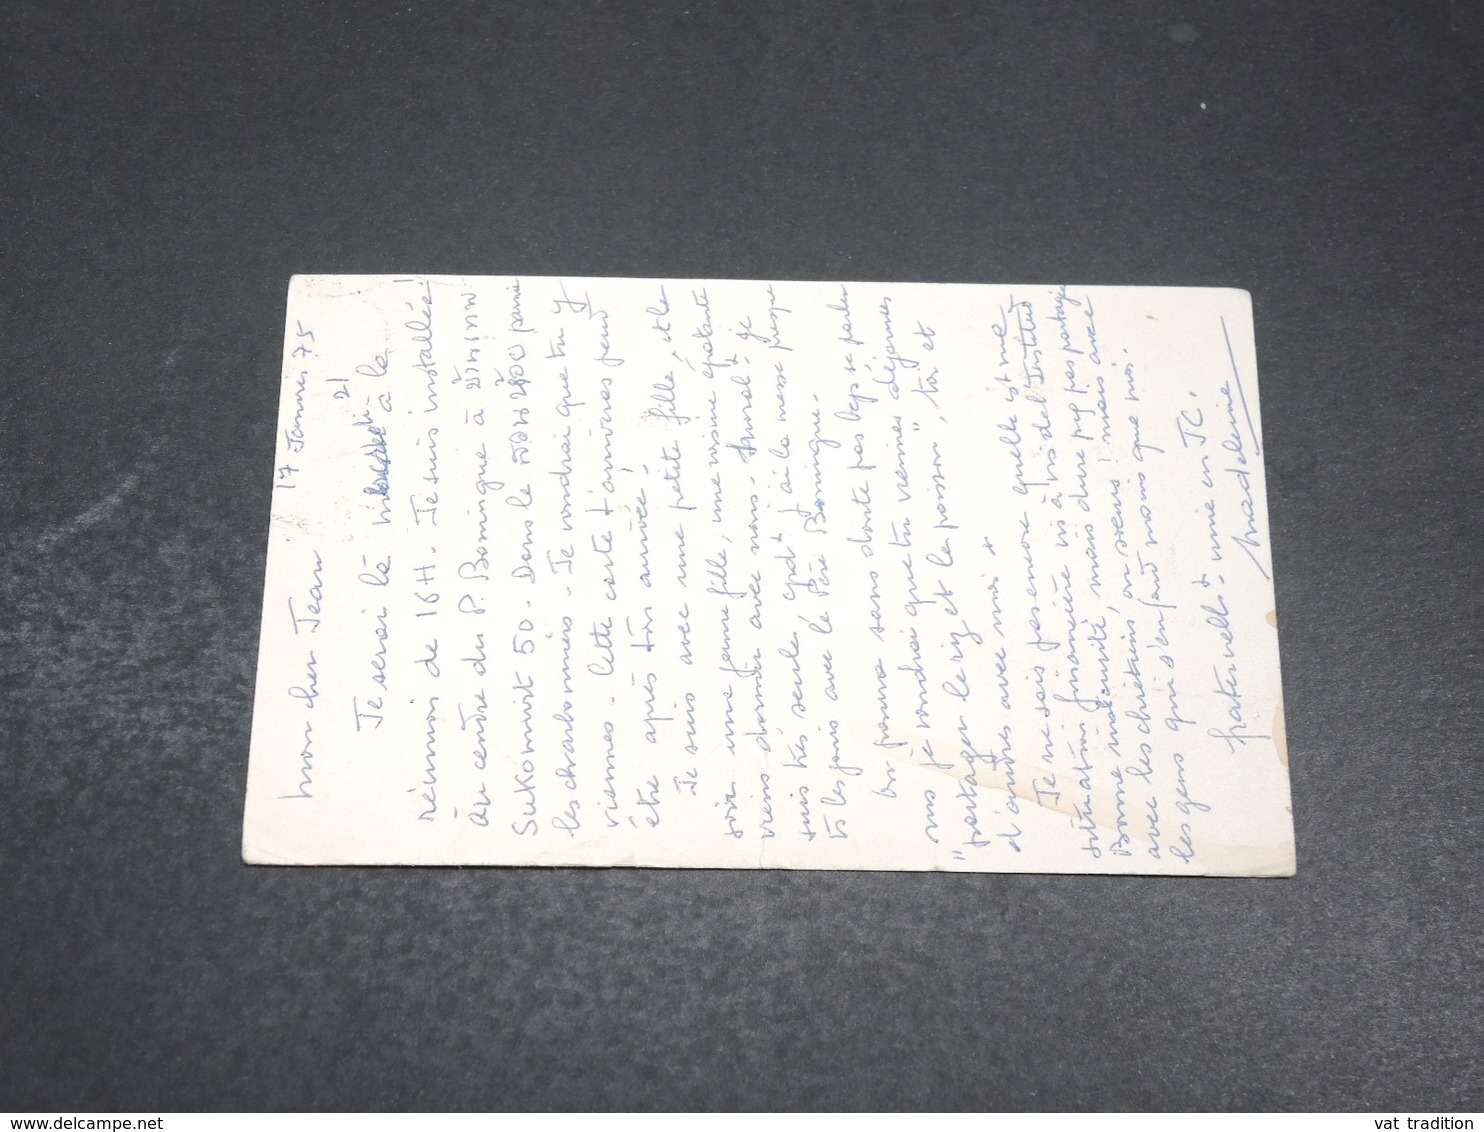 17 Janvier 75
Mon cher Jean
21
Je serai là à la
réunion de 16H. Je suis installée
au centre du P. Bonningue à บ้านเทพ
Sukomvit 50. Dans le สวนอ้อย parmi
les charbonniers. Je voudrai que tu y
viennes. Cette carte t'arrivera peut
être après ton arrivée!
Je suis avec une petite fille, et le
soir une jeune fille, une voisine épatante
viens dormir avec nous. Je
suis très seule qd+ j'ai la messe presque
ts les jours avec le Père Bonningue.
On pourra sans doute pas bcp se parler
mais je voudrai que tu viennes déjeuner
"partager le riz et le poisson", toi et
d'autres avec moi +
Je ne sais pas encore quelle est ma
situation financière vis à vis de l'Institut
Bonne mat, mais dure pas partagée
avec les chrétiens, on sens! mais avec
les gens qui s'enfoncent moins que moi.
fraternell+ unie en JC.
Madeleine
www.delcampe.net
vat tradition